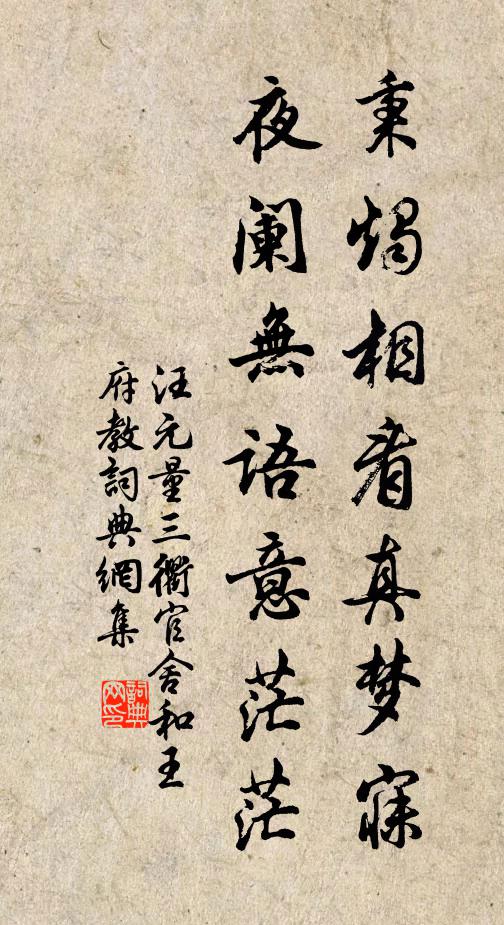 秉烛相看真梦寐
夜阑無语意茫茫
汪元量三衢官舍和王
府教詞典網集
詞典
网印